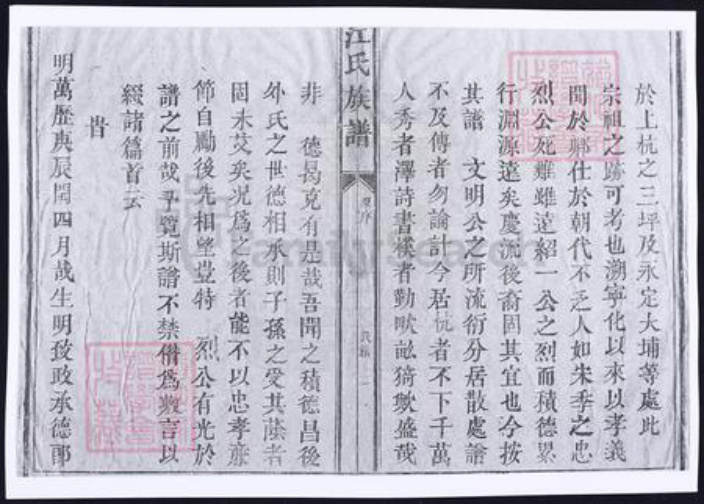 於上杭之三坪及永定大埔等處此
宗祖之跡可考也溯寧化以來以孝義
聞於鄉仕於朝代不乏人如朱季之忠
烈公死難雖遠紹一公之烈而積德累
行淵源遠矣慶流後裔固其宜也今按
其譜 文明公之所流衍分居散處譜
不及傳者勿論計今居杭者不下千萬
人秀者澤詩書樸者勤畎畝猗歟盛哉
江氏族譜
原序
非 德曷克有是哉吾聞之積德昌後
外氏之世德相承則子孫之受其蔭者
固未艾矣況為之後者能不以忠孝廉
節自勵後先相望豈特 烈公有光於
譜之前哉予覽斯譜不禁僭為數言以
綴諸篇首云
時
明萬歷庚辰閏四月哉生明致政承德郎